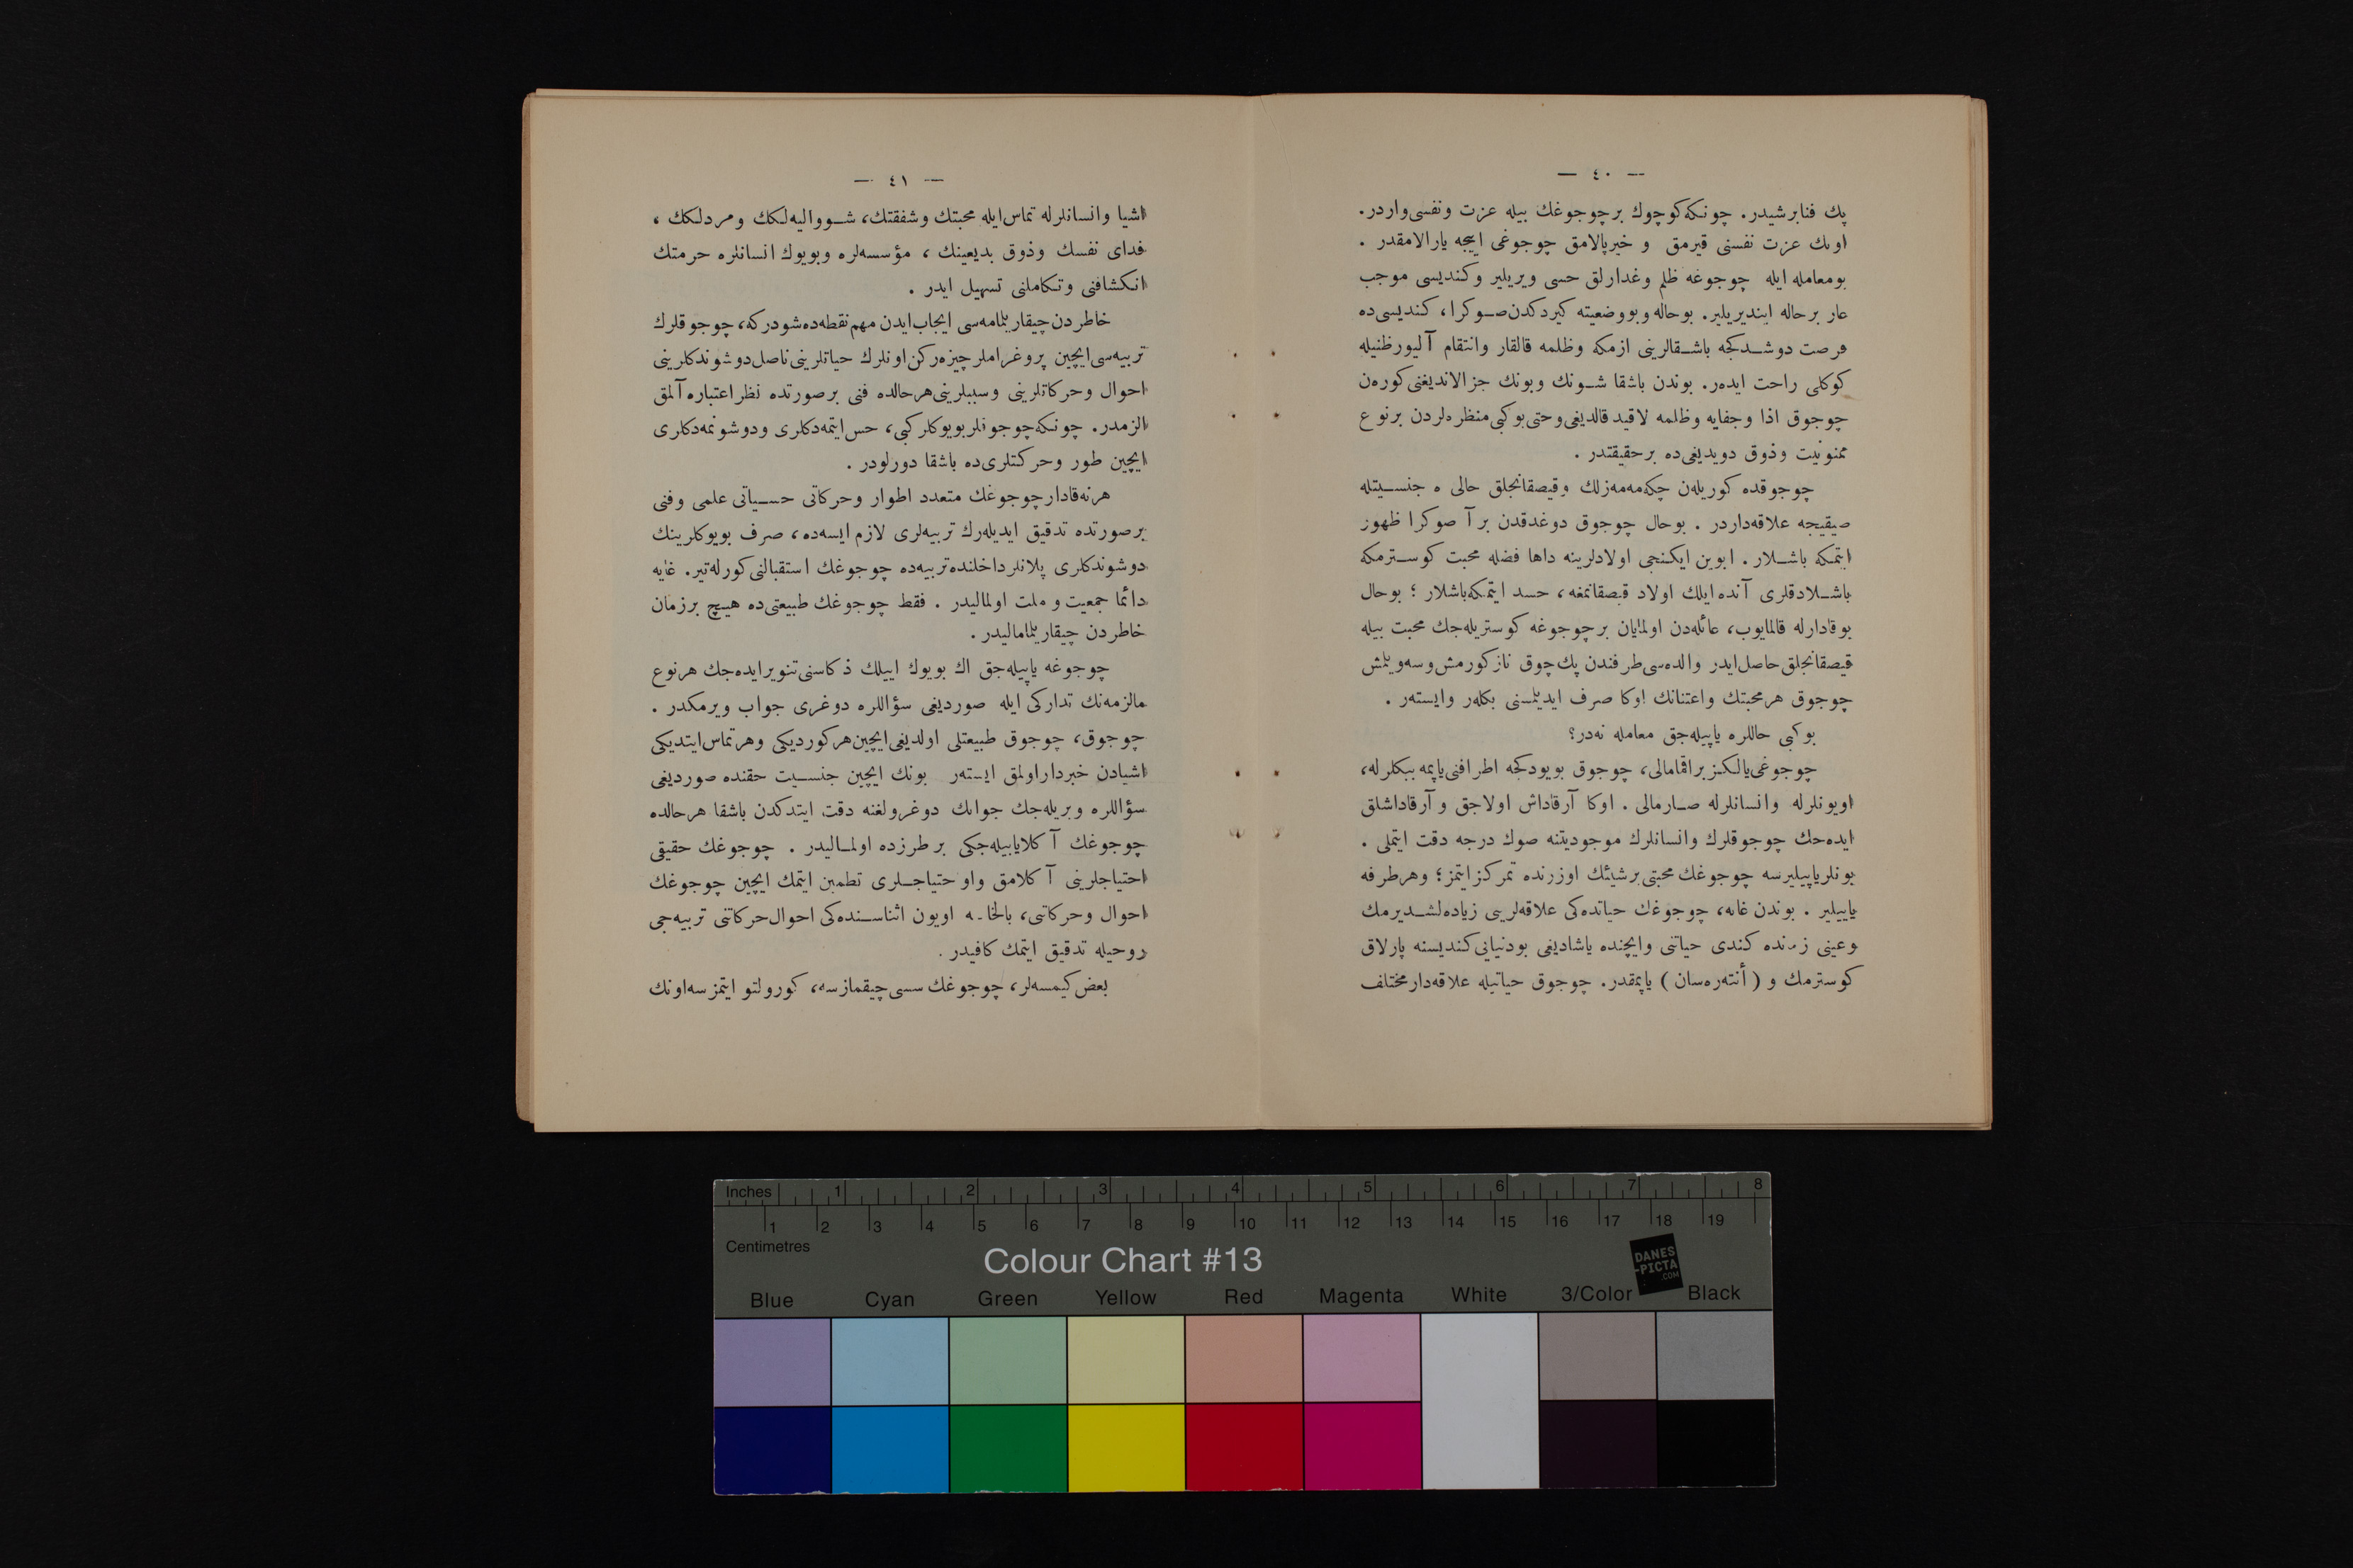 — ٤٠ —
پك فنابرشيدر. چونكه كوچوك برچوجوغك بيله عزت ونفسی واردر.
اونك عزت نفسنی قيرمق و خيرپالامق چوجوغی اييجه يارالامقدر .
بومعامله ايله چوجوغه ظلم وغدارلق حسی ويريلير وكنديسی موجب
عار برحاله اينديريلير. بوحاله وبووضعيته كيردكدن صوكرا، كنديسی ده
فرصت دوشدكجه باشقالرينی ازمكه وظلمه قالقار وانتقام آليورظنيله
كوكلی راحت ايده‌ر. بوندن باشقا شونك وبونك جزالانديغنی كوره‌ن
چوجوق اذا وجفايه وظلمه لاقيد قالديغی وحتی بوكبی منظره‌لردن برنوع
ممنونيت وذوق دويديغی ده برحقيقتدر .
چوجوقده كوريله‌ن چكه‌مه‌مه‌زلك وقيصقانجلق حالی ه جنسيتله
صيقيجه علاقه‌داردر . بوحال چوجوق دوغدقدن برآ صوكرا ظهور
ايتمكه باشلار . ابوين ايكنجی اولادلرينه داها فضله محبت كوسترمكه
باشلادقلری آنده ايلك اولاد قيصقانمغه، حسد ايتمكه باشلار ؛ بوحال
بوقادارله قالمايوب، عائله‌دن اولمايان برچوجوغه كوستريله‌جك محبت بيله
قيصقانجلق حاصل ايدر والده‌سی طرفندن پك چوق ناز كورمش وسه‌ويلمش
چوجوق هرمحبتك واعتنانك اوكا صرف ايديلمسنی بكلەر وايسته‌ر .
بوكبی حاللره ياپيله‌جق معامله نه‌در؟
چوجوغی يالكز براقمامالی، چوجوق بويودكجه اطرافنی ياپمه ببكلرله،
اويونلرله وانسانلرله صارمالی . اوكا آرقاداش اولاجق و آرقاداشلق
ايده‌جك چوجوقلرك وانسانلرك موجوديتنه صوك درجه دقت ايتملی .
بونلرياپيليرسه چوجوغك محبتی برشيئك اوزرنده تمركز ايتمز؛ وهرطرفه
ياييلير . بوندن غايه، چوجوغك حياتده‌كی علاقه‌لرينی زياده‌لشديرمك
وعينی زمانده كندی حياتنی وايچنده ياشاديغی بودنيايی كنديسنه پارلاق
كوسترمك و ( أنته‌ره‌سان ) ياپمقدر. چوجوق حياتيله علاقه‌دارمختلف
— ٤١ —
اشيا وانسانلرله تماس ايله محبتك وشفقتك، شوواليه‌لكك ومردلكك ،
فدای نفسك وذوق بديعينك ، مؤسسه‌لره وبويوك انسانلره حرمتك
انكشافنی وتكاملنی تسهيل ايدر .
خاطردن چيقاريلمامه‌سی ايجاب ايدن مهم نقطه‌ده شودركه، چوجوقلرك
تربيه‌سی ايچين پروغراملر چيزه‌ركن اونلرك حياتلرينی ناصل دوشوندكلرينی
احوال وحركاتلرينی وسببلرينی هرحالده فنی برصورتده نظر اعتباره آلمق
الزمدر. چونكه چوجوقلر بويوكلر كبی، حس ايتمه‌دكلری ودوشونمه‌دكلری
ايچين طور وحركتلری ده باشقا دورلودر .
هرنه‌قادار چوجوغك متعدد اطوار وحركاتی حسياتی علمی وفنی
برصورتده تدقيق ايديله‌رك تربيه‌لری لازم ايسه‌ده، صرف بويوكلرينك
دوشوندكلری پلانلر داخلنده تربيه‌ده چوجوغك استقبالنی كورله‌تير. غايه
دائما جمعيت و ملت اولماليدر . فقط چوجوغك طبيعتی ده هيچ برزمان
خاطردن چيقاريلماماليدر .
چوجوغه ياپيله‌جق اك بويوك اييلك ذكاسنی تنوير ايده‌جك هرنوع
مالزمه‌نك تداركی ايله صورديغی سؤاللره دوغری جواب ويرمكدر .
چوجوق، چوجوق طبيعتلی اولديغی ايچين هركورديكی وهرتماس ايتديكی
اشيادن خبردار اولمق ايسته‌ر بونك ايچين جنسيت حقنده صورديغی
سؤاللره ويريله‌جك جوابك دوغرولغنه دقت ايتدكدن باشقا هرحالده
چوجوغك آكلايابيله‌جكی برطرزده اولماليدر . چوجوغك حقيقی
احتياجلرينی آكلامق واو احتياجلری تطمين ايتمك ايچين چوجوغك
احوال وحركاتی، بالخاصه اويون اثناسنده‌كی احوال حركاتنی تربيه‌جی
روحيله تدقيق ايتمك كافيدر .
بعض كيمسه‌لر، چوجوغك سسی چيقمازسه، كورولتو ايتمزسه اونك
Inches 1 2 3 4 5 6 7 8
1 2 3 4 5 6 7 8 9 10 11 12 13 14 15 16 17 18 19
Centimetres
Colour Chart #13
DANES
-PICTA
.COM
Blue Cyan Green Yellow Red Magenta White 3/Color Black